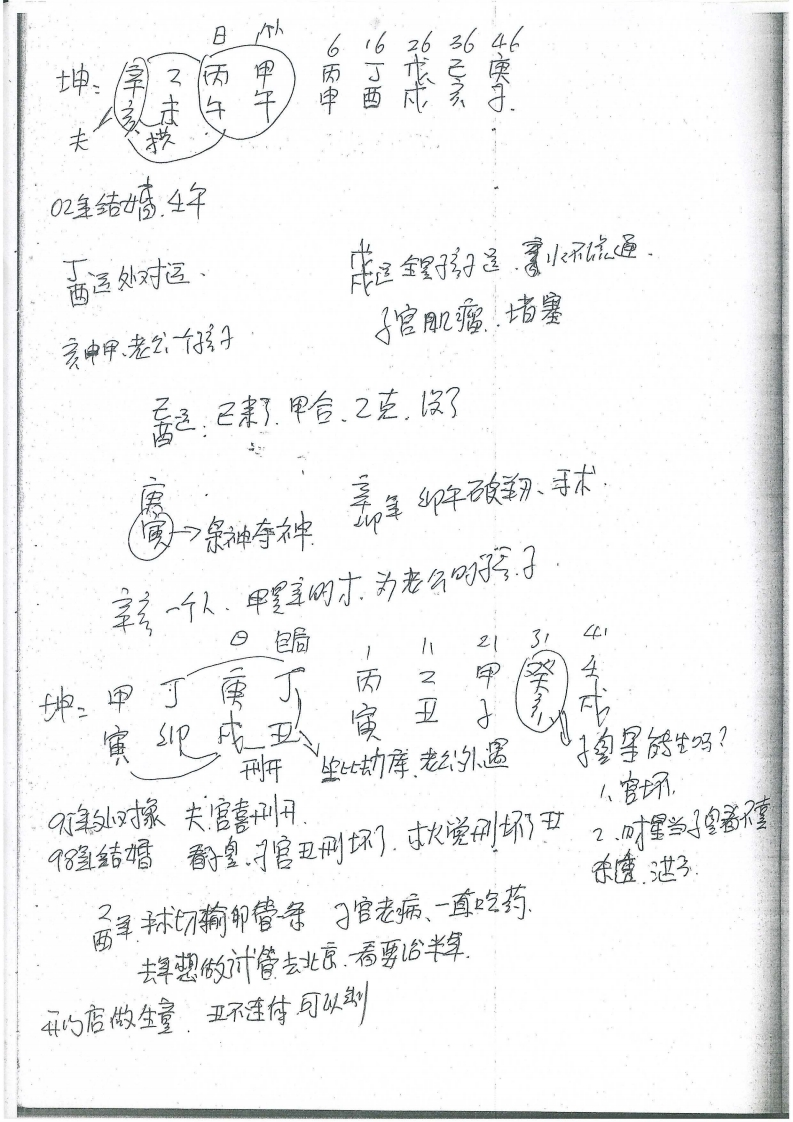 日 6 16 26 36 46
坤: 辛 乙 丙 甲 丙 丁 戊 己 庚
亥 未 午 午 申 酉 戌 亥 子
夫 拱
02年结婚.壬午
丁酉运处对运. 戊戌运全是孩子运.不流通.
子宫肌瘤.堵塞
亥中甲.老公一个孩子
己酉运:己来了.甲合.乙克.没了
庚寅→枭神夺神. 辛卯年 卯午破.手术.
辛亥一个人.甲是辛的才.为老公的孩子.
日 包局 1 11 21 31 41
坤: 甲 丁 庚 丁 丙 乙 甲 癸 壬
寅 卯 戌 丑 寅 丑 子 亥 戌
刑开 坐比劫库.老公外遇 子息星能生吗?
95年处对像 夫宫喜刑开. 1、宫坏.
98年结婚 看子息.子宫丑刑坏了. 戌火党刑坏了丑 2、时星当子息看不
乙酉年.手术切输卵管一条 子宫老病、一直吃药.
去年想做试管.去北京.看要治半年.
开药店做生意. 丑不连体.可以制